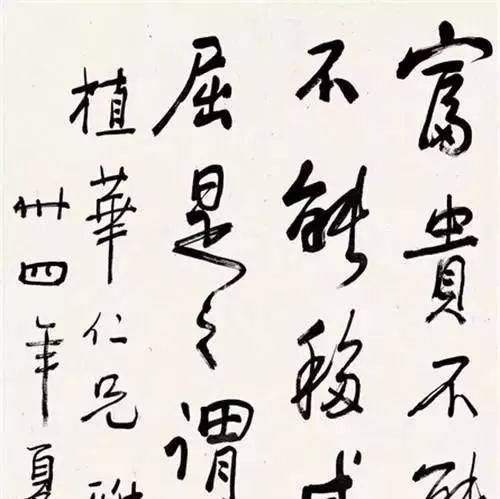 富貴不能
不能移威
屈是之謂
植華仁兄雅
卅四年夏